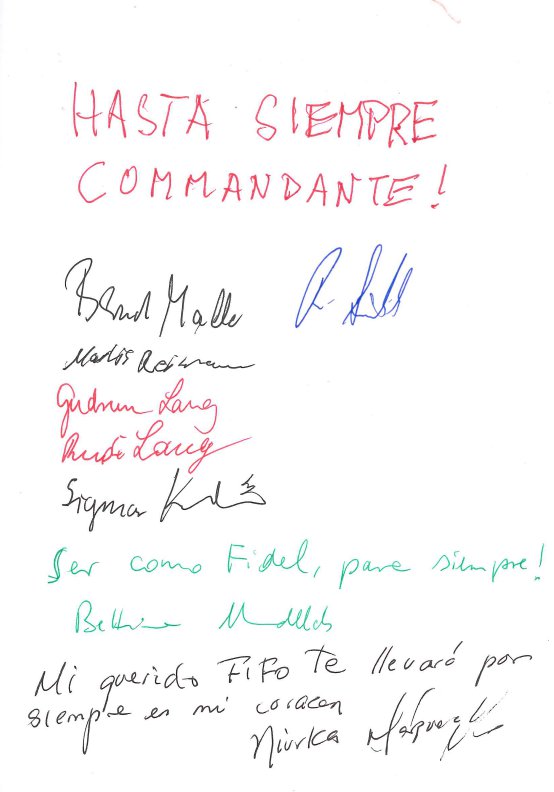 HASTA SIEMPRE
COMMANDANTE!
Bernd
Gudrun Lang
Rudi Lang
Sigmar
Ser como Fidel, para siempre!
Bettina
Mi querido FiFo te llevaró por
siempre en mi coracen
Niurka